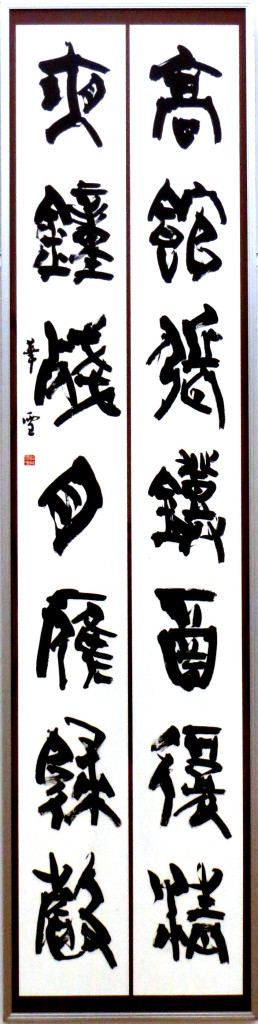 高館張鐙酉復清
夜鐘殘月雁歸聲
華雪